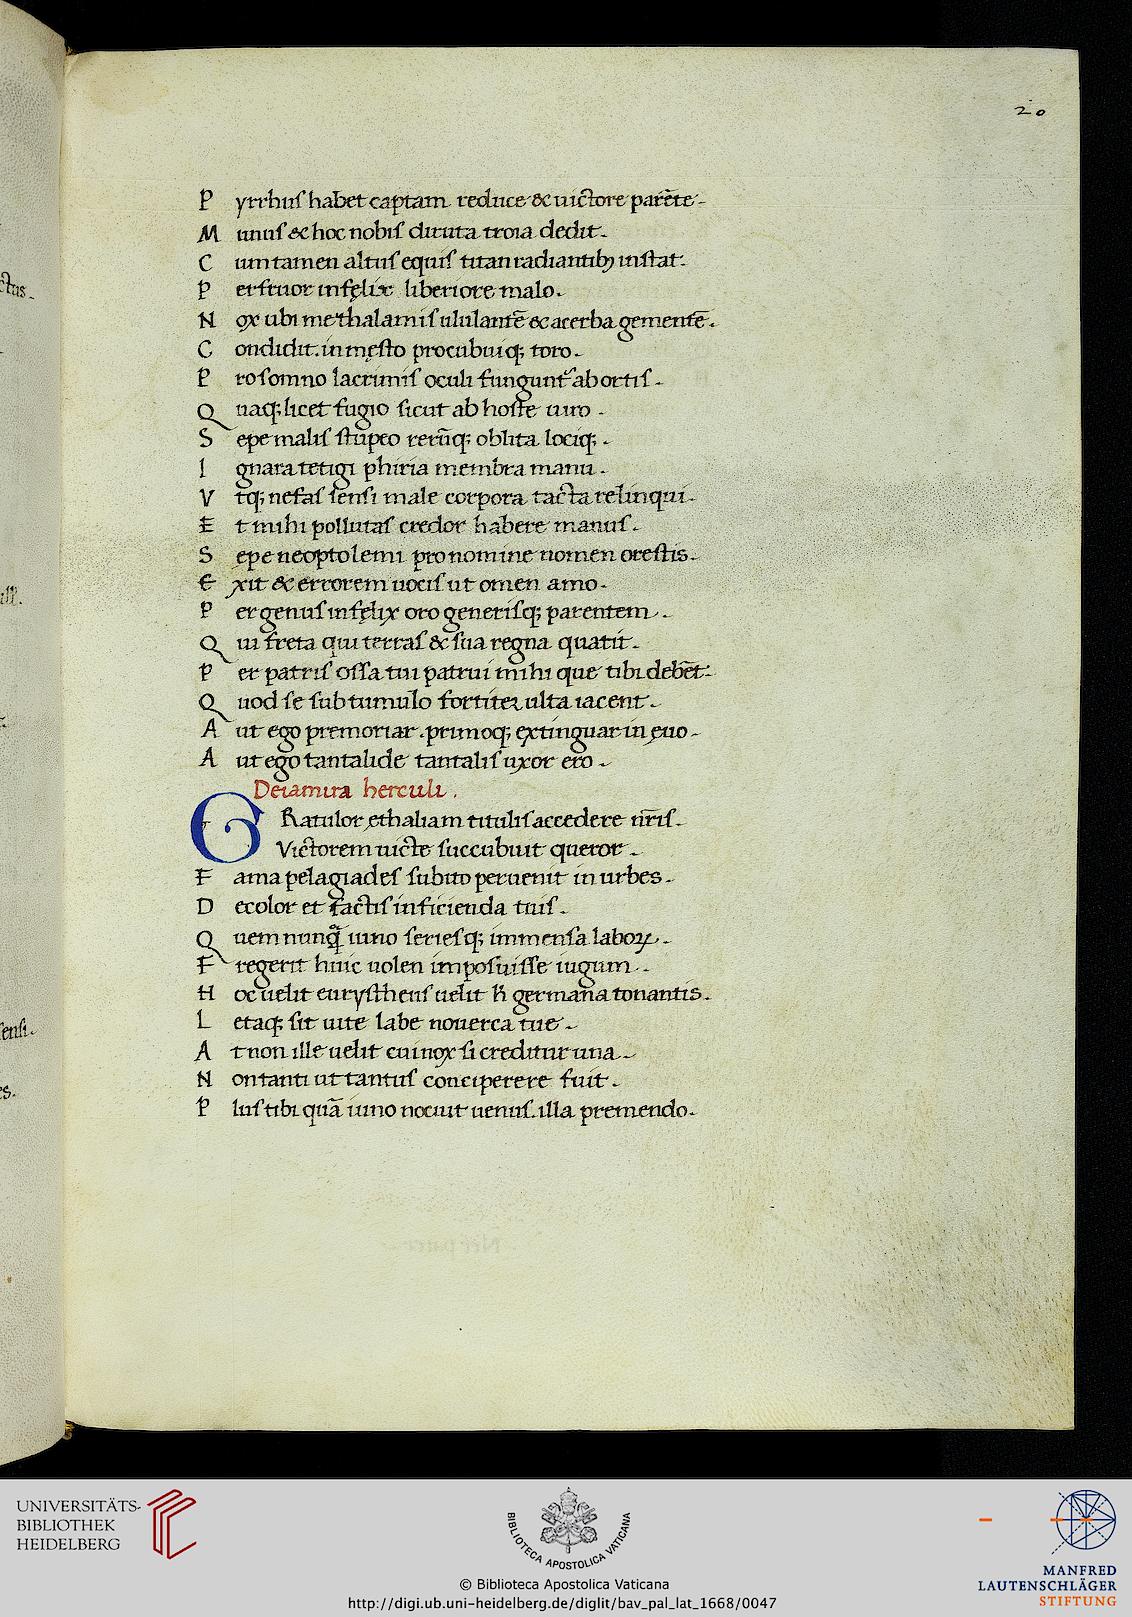 20
P yrrhus habet captam reduce & uictore parēte.
M unus & hoc nobis diruta troia dedit.
C um tamen altus equis titan radiantibꝫ instat.
P erfruor infęlix liberiore malo.
N ox ubi me thalamis ululantē & acerba gementē.
C ondidit. in męsto procubuiqꝫ toro.
P ro somno lacrimis oculi fungunt᷑ abortis.
Q uaqꝫ licet fugio sicut ab hoste uiro.
S epe malis stupeo rerūqꝫ oblita lociqꝫ.
I gnara tetigi phiria membra manu.
V tqꝫ nefas sensi male corpora tacta relinqui.
E t mihi pollutas credor habere manus.
S epe neoptolemi pro nomine nomen orestis.
E xit & errorem uocis ut omen amo.
P er genus infęlix oro generisqꝫ parentem.
Q ui freta qui terras & sua regna quatit.
P er patris ossa tui patrui mihi que tibi debēt.
Q uod se sub tumulo fortiter ulta iacent.
A ut ego premoriar. primoqꝫ extinguar in ęuo.
A ut ego tantalide tantalis uxor ero.
Deiamira herculi.
GRatulor ęthaliam titulis accedere nr̄is.
Victorem uicte succubuit queror.
F ama pelagiades subito peruenit in urbes.
D ecolor et factis inficienda tuis.
Q uem nunqᷓ iuno seriesqꝫ immensa laboꝝ.
F regerit huic uolen imposuisse iugum.
H oc uelit eurystheus uelit h̄ germana tonantis.
L etaqꝫ sit uite labe nouerca tue.
A t non ille uelit cui nox si creditur una.
N on tanti ut tantus conciperere fuit.
P lus tibi quā iuno nocuit uenus. illa premendo.
UNIVERSITÄTS-
BIBLIOTHEK
HEIDELBERG
BIBLIOTECA APOSTOLICA VATICANA
MANFRED
LAUTENSCHLÄGER
STIFTUNG
© Biblioteca Apostolica Vaticana
http://digi.ub.uni-heidelberg.de/diglit/bav_pal_lat_1668/0047